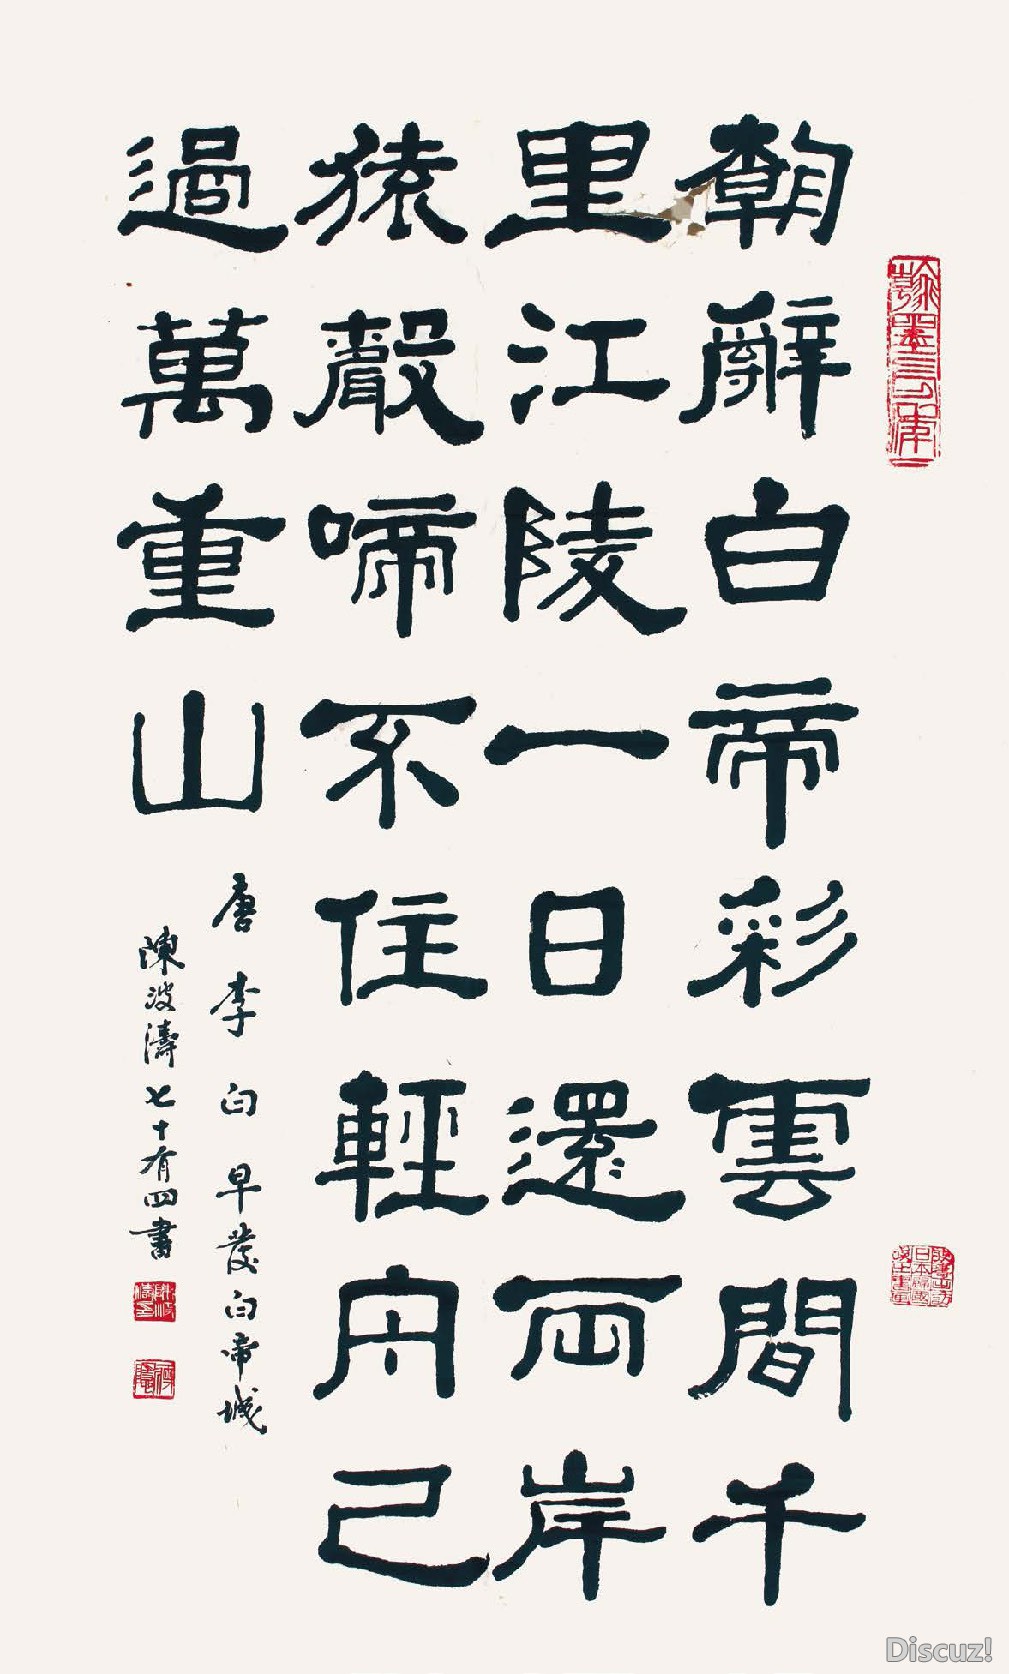 朝辭白帝彩雲間千
里江陵一日還兩岸
猿聲啼不住輕舟已
過萬重山
唐李白早發白帝城
陳波濤七十有四書
Discuz!